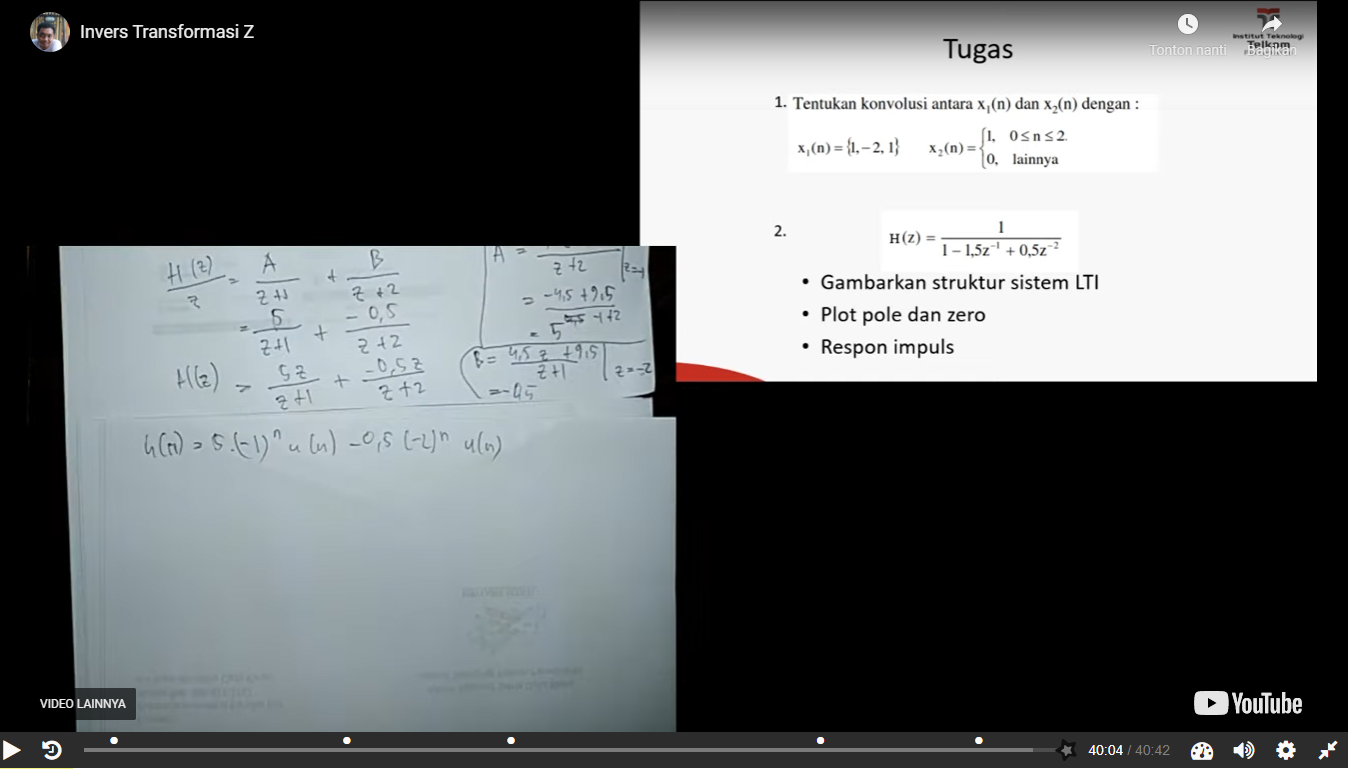 Invers Transformasi Z
Tonton nanti
Bagikan
Institut Teknologi
Telkom
Tugas
1. Tentukan konvolusi antara x₁(n) dan x₂(n) dengan :
x₁(n) = {1, – 2, 1} x₂(n) = {1, 0 ≤ n ≤ 2
0, lainnya
2. H(z) = 1 / (1 – 1,5z⁻¹ + 0,5z⁻²)
• Gambarkan struktur sistem LTI
• Plot pole dan zero
• Respon impuls
H(z)/z = A/(z+1) + B/(z+2)
= 5/(z+1) + -0,5/(z+2)
H(z) = 5z/(z+1) + -0,5z/(z+2)
A = z+2 |z=-1
= (-4,5 + 9,5)/(-1+2)
= 5
B = (4,5 z + 9,5)/(z+1) | z=-2
= -0,5
h(n) = 5.(-1)ⁿ u(n) -0,5 (-2)ⁿ u(n)
VIDEO LAINNYA
YouTube
40:04 / 40:42